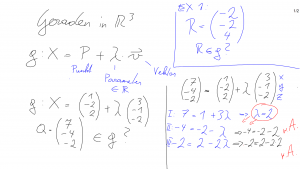 Geraden in ℝ³
g: X = P + λ v⃗
Punkt
Parameter
∈ ℝ
Vektor
g: X = (1 -2 2) + λ (3 -1 -2)
Q = (7 -4 -2) ∈ g?
EX 1:
R = (-2 -2 4)
R ∈ g?
12
(7 -4 -2) = (1 -2 2) + λ (3 -1 -2) x y z
I: 7 = 1 + 3λ ⇒ λ = 2
II: -4 = -2 - λ ⇒ -4 = -2 - 2 w.A.
III: -2 = 2 - 2λ ⇒ -2 = 2 - 2·2
w.A.